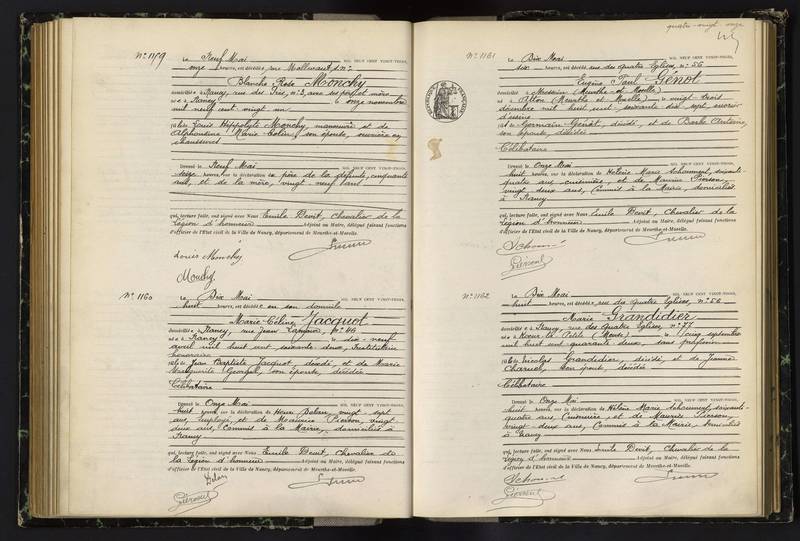 quatre-vingt onze
N° 1159
Le Neuf Mai MIL NEUF CENT VINGT-TROIS,
onze heures, est décédée, rue n°
Blanche Rose Monchy
domiciliée à Nancy, rue des n° 3, avec ses père et mère
née à Nancy le onze novembre
mil neuf cent vingt un
fille de Louis Hippolyte Monchy, manœuvre et de
Alphonsine Marie son épouse, ouvrière en
chaussures
Dressé le Neuf Mai MIL NEUF CENT VINGT-TROIS,
seize heures, sur la déclaration du père de la défunte, cinquante
ans, et de la mère, vingt neuf ans
qui, lecture faite, ont signé avec Nous Emile Devit, Chevalier de la
Légion d'honneur Adjoint au Maire, délégué faisant fonctions
d'officier de l'Etat civil de la Ville de Nancy, département de Meurthe-et-Moselle.
Louis Monchy
Monchy
N° 1160
Le Dix Mai MIL NEUF CENT VINGT-TROIS,
huit heures, est décédée en son domicile
Marie Céline Jacquot
domiciliée à Nancy, rue Jean n° 66
née à Nancy le dix neuf
avril mil huit cent soixante deux, Institutrice
honoraire
fille de Jean Baptiste Jacquot décédé, et de Marie
Marguerite son épouse, décédée
Célibataire
Dressé le Onze Mai MIL NEUF CENT VINGT-TROIS,
huit heures, sur la déclaration de Henri vingt sept
ans, employé, et de Maurice Pierson, vingt
deux ans, Commis à la Mairie, domiciliés à
Nancy
qui, lecture faite, ont signé avec Nous Emile Devit, Chevalier de
la Légion d'honneur Adjoint au Maire, délégué faisant fonctions
d'officier de l'Etat civil de la Ville de Nancy, département de Meurthe-et-Moselle.
N° 1161
Le Dix Mai MIL NEUF CENT VINGT-TROIS,
six heures, est décédé rue des quatre Eglises, n° 56
Eugène Paul Génot
domicilié à Messein (Meurthe et Moselle)
né à (Meurthe et Moselle) le vingt trois
décembre mil huit cent soixante dix sept, ouvrier
d'usine
fils de Germain Génot, décédé, et de Barbe Antoine,
son épouse, décédée
Célibataire
Dressé le Onze Mai MIL NEUF CENT VINGT-TROIS,
huit heures, sur la déclaration de Hélène Marie soixante
quatre ans, cuisinière, et de Maurice Pierson,
vingt deux ans, Commis à la Mairie, domiciliés
à Nancy
qui, lecture faite, ont signé avec Nous Emile Devit, Chevalier de la
Légion d'honneur Adjoint au Maire, délégué faisant fonctions
d'officier de l'Etat civil de la Ville de Nancy, département de Meurthe-et-Moselle.
N° 1162
Le Dix Mai MIL NEUF CENT VINGT-TROIS,
huit heures, est décédée, rue des quatre Eglises, n° 56
Marie Grandidier
domiciliée à Nancy, rue des Quatre Eglises, n° 77
née à Koeur la Petite (Meuse) le cinq septembre
mil huit cent quarante deux, sans profession
fille de Nicolas Grandidier, décédé, et de Jeanne
son épouse, décédée
Célibataire
Dressé le Onze Mai MIL NEUF CENT VINGT-TROIS,
huit heures, sur la déclaration de Hélène Marie soixante
quatre ans, Cuisinière, et de Maurice Pierson,
vingt deux ans, Commis à la Mairie, domiciliés
à Nancy
qui, lecture faite, ont signé avec Nous Emile Devit, Chevalier de la
Légion d'honneur Adjoint au Maire, délégué faisant fonctions
d'officier de l'Etat civil de la Ville de Nancy, département de Meurthe-et-Moselle.